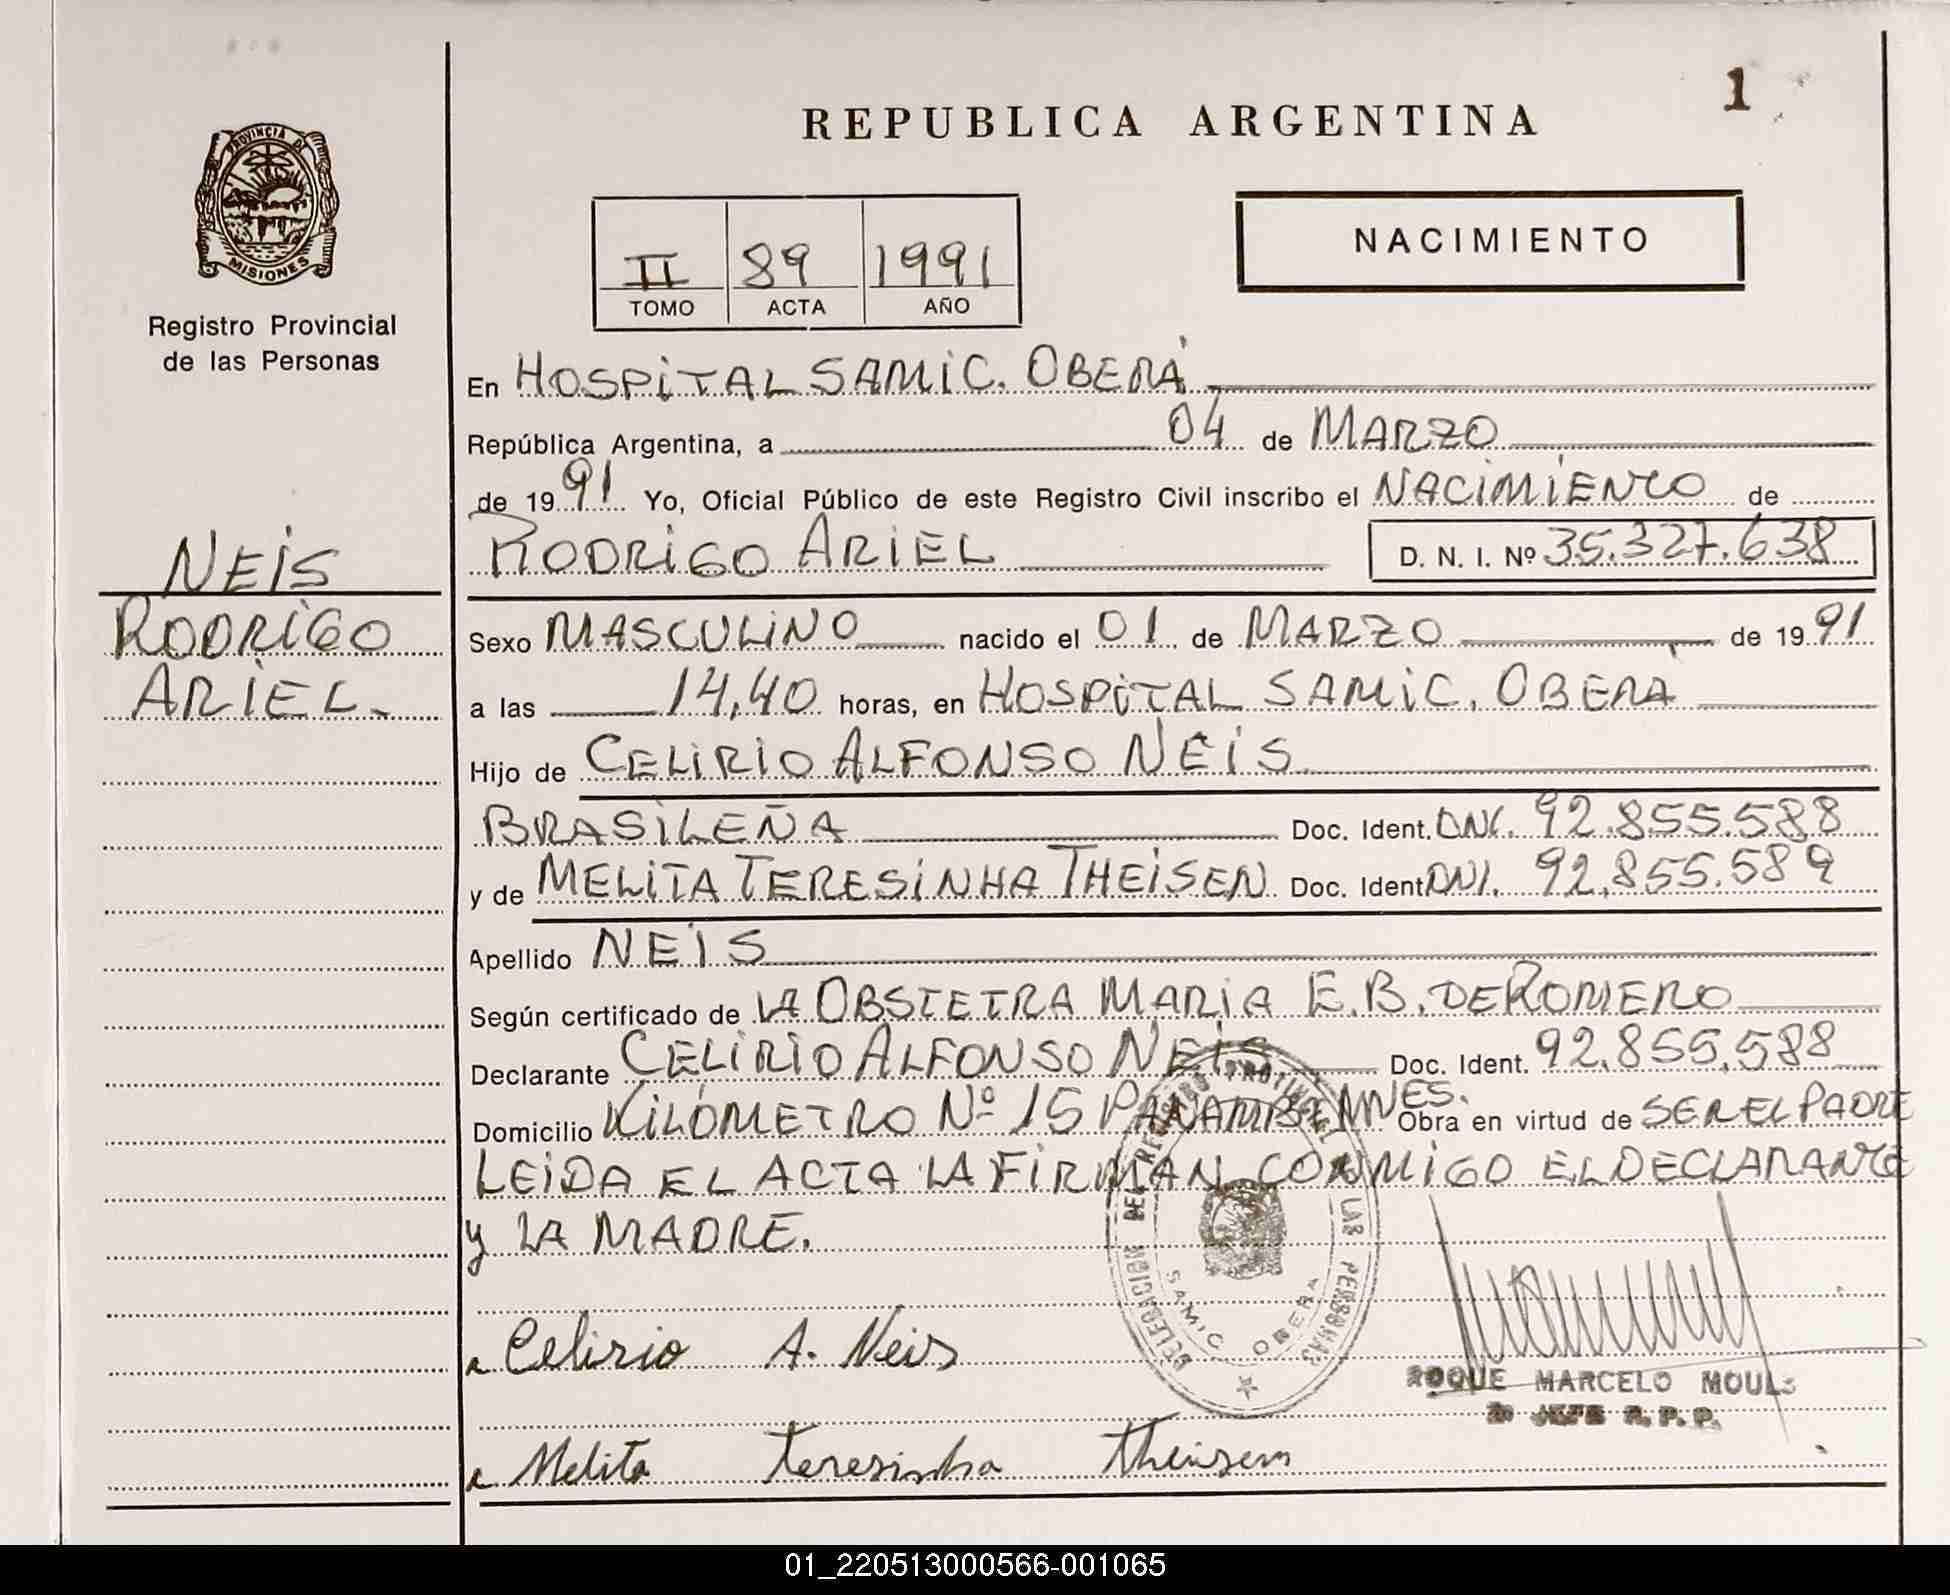 1
REPUBLICA ARGENTINA
PROVINCIA DE
MISIONES
Registro Provincial
de las Personas
NACIMIENTO
II 89 1991
TOMO ACTA AÑO
En HOSPITAL SAMIC. OBERÁ
República Argentina, a 04 de MARZO
de 1991 Yo, Oficial Público de este Registro Civil inscribo el NACIMIENTO de
RODRIGO ARIEL D. N. I. Nº 35.327.638
NEIS
RODRIGO
ARIEL.
Sexo MASCULINO nacido el 01 de MARZO de 1991
a las 14,40 horas, en HOSPITAL SAMIC. OBERÁ
Hijo de CELIRIO ALFONSO NEIS
BRASILEÑA Doc. Ident. DNI. 92.855.588
y de MELITA TERESINHA THEISEN Doc. Ident DNI. 92.855.589
Apellido NEIS
Según certificado de LA OBSTETRA MARIA E.B. DE ROMERO
Declarante CELIRIO ALFONSO NEIS Doc. Ident. 92.855.588
Domicilio KILÓMETRO Nº 15 PANAMBI MNES. Obra en virtud de SER EL PADRE
LEIDA EL ACTA LA FIRMAN CONMIGO EL DECLARANTE
y LA MADRE.
DELEGACION DEL REGISTRO PROVINCIAL DE LAS PERSONAS
SAMIC OBERA
Celirio A. Neis
ROQUE MARCELO
JEFE R. P. P.
Melita Teresinha Theisen
01_220513000566-001065